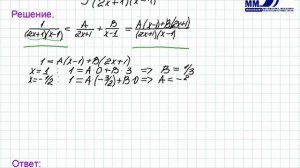 Решение.
1/((2x+1)(x-1)) = A/(2x+1) + B/(x-1) = (A(x-1)+B(2x+1))/((2x+1)(x-1))
1 = A(x-1)+B(2x+1)
x=1 : 1 = A·0 + B·3 => B = 1/3
x=-1/2 : 1 = A·(-3/2)+B·0 => A = -2
Ответ: